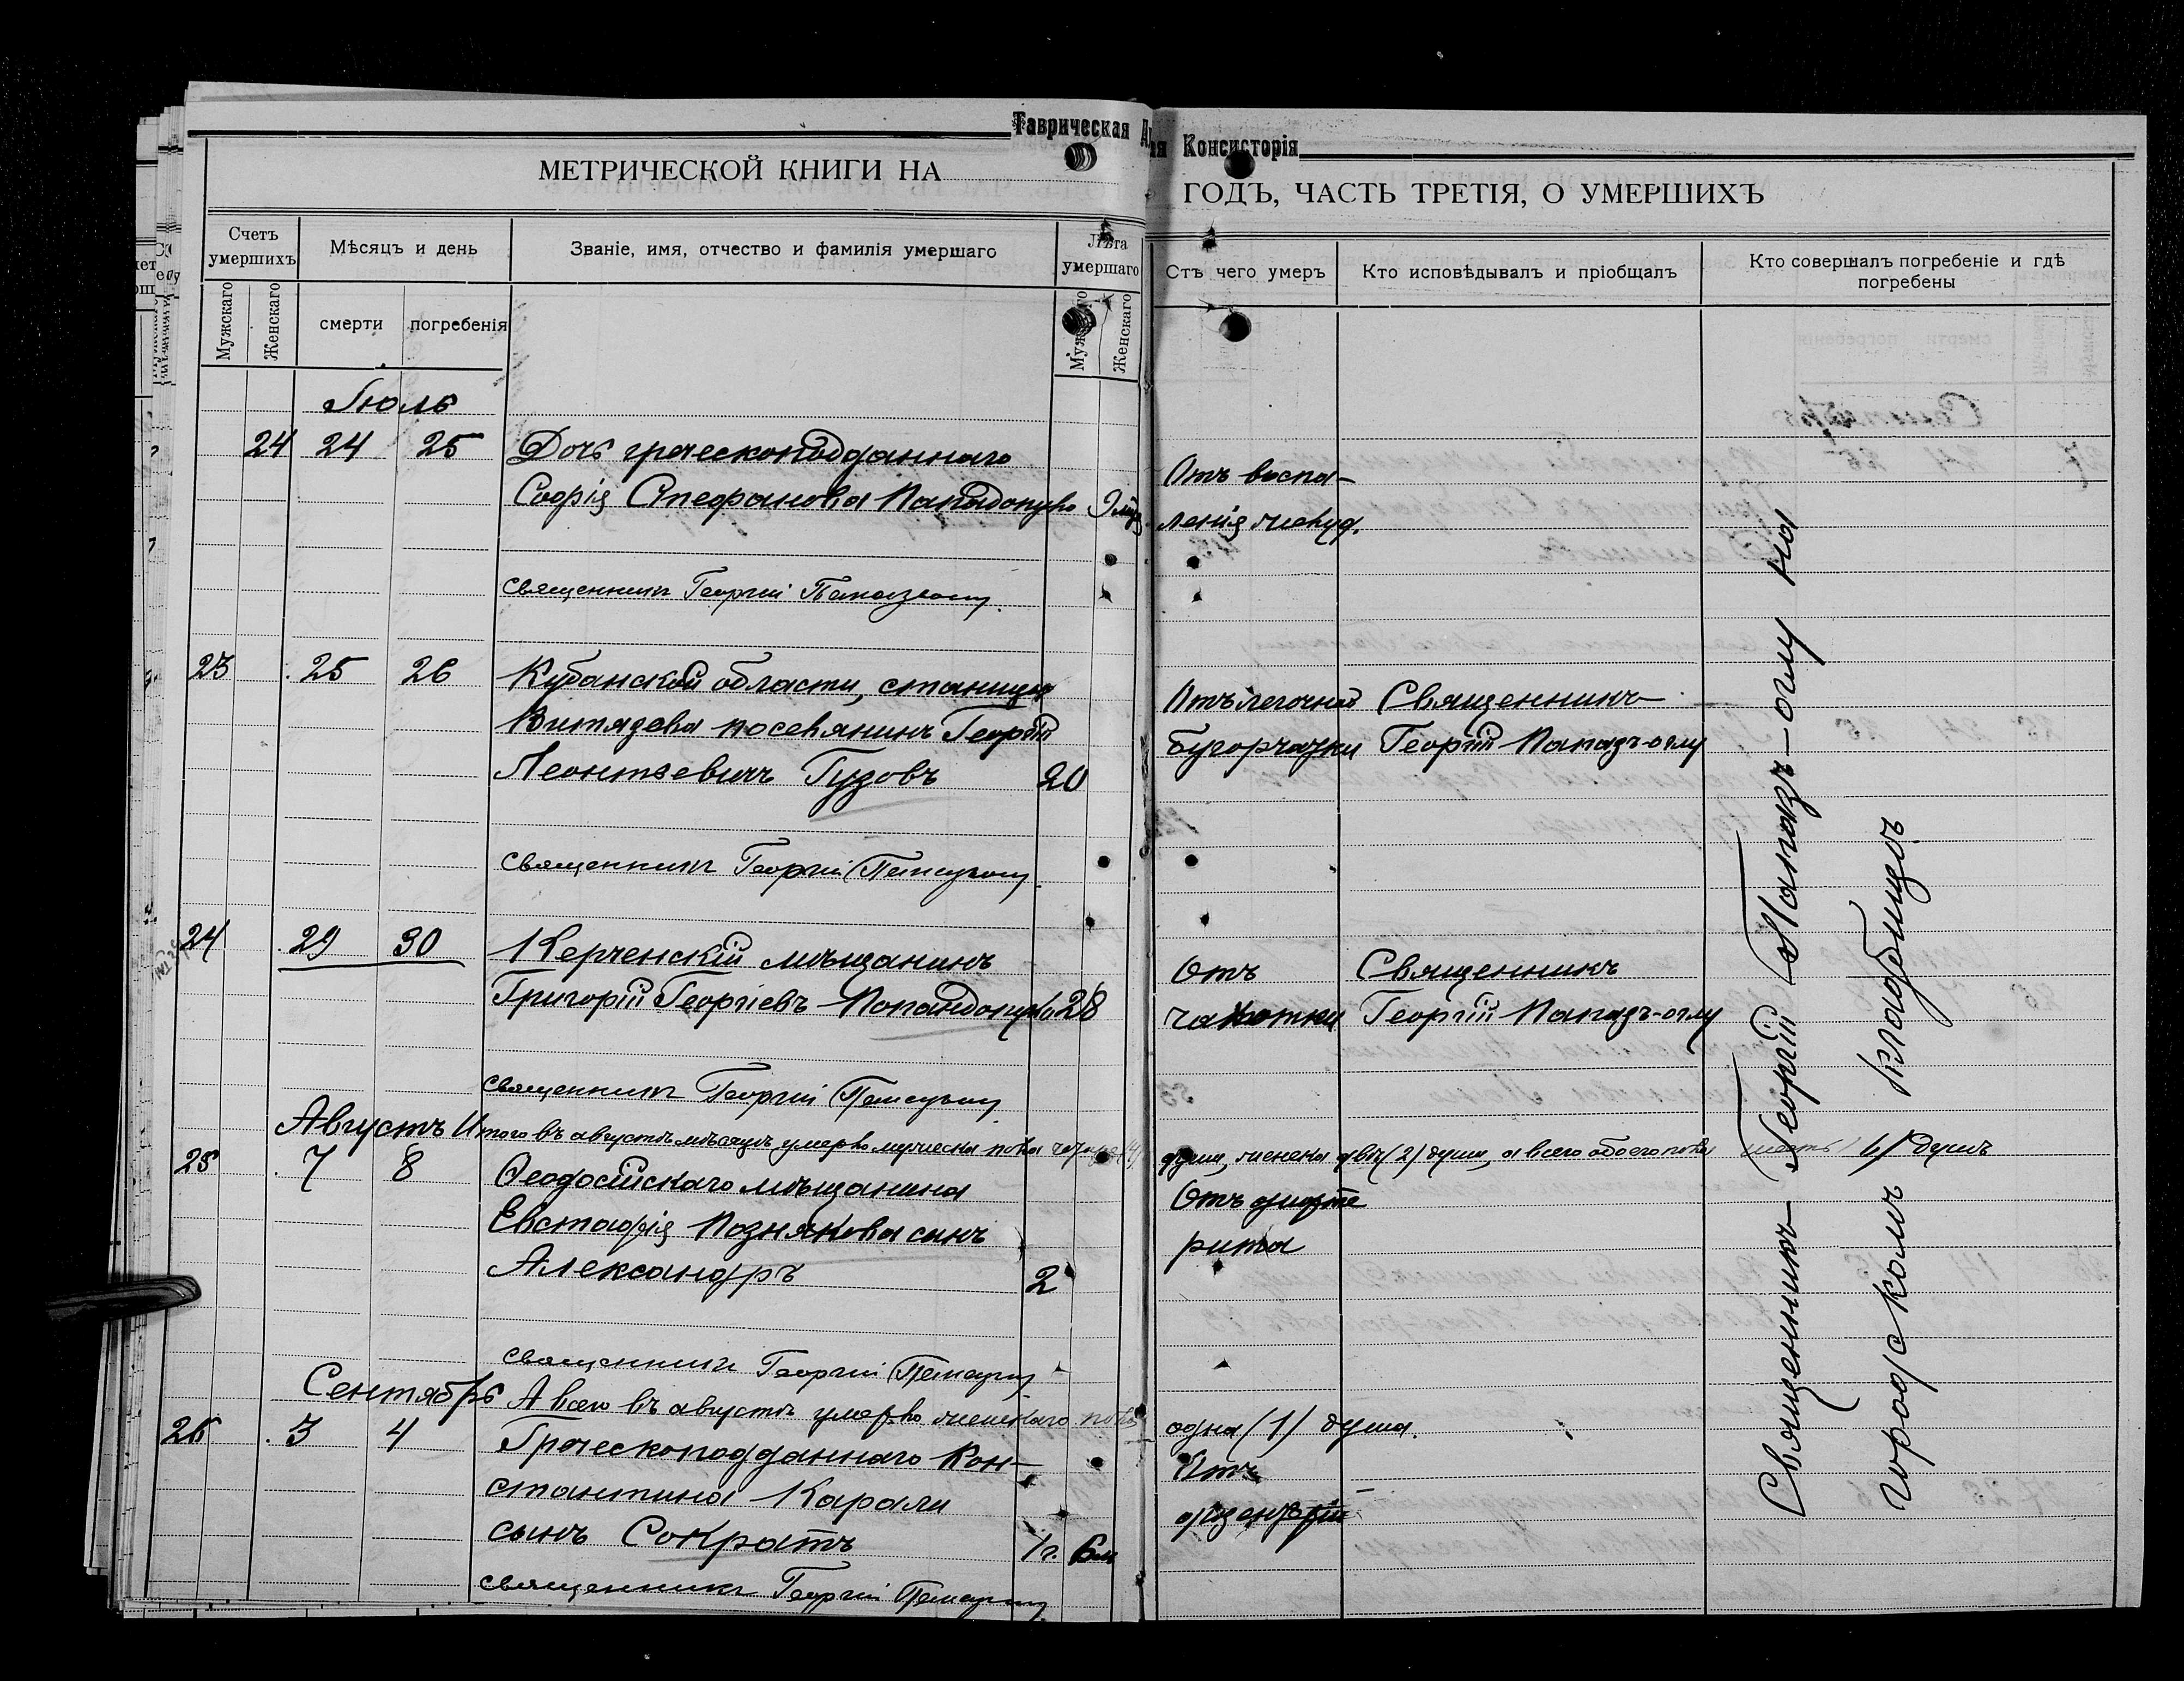 Таврическая
Консисторія
МЕТРИЧЕСКОЙ КНИГИ НА
ГОДЪ, ЧАСТЬ ТРЕТІЯ, О УМЕРШИХЪ
Счетъ умершихъ
Мѣсяцъ и день
Званіе, имя, отчество и фамилія умершаго
Лѣта умершаго
Отъ чего умеръ
Кто исповѣдывалъ и пріобщалъ
Кто совершалъ погребеніе и гдѣ погребены
Мужскаго
Женскаго
смерти
погребенія
Мужскаго
Женскаго
Іюль
24 24 25 Дочь греческоподданнаго
Софія Стефанова Пападопуло 9
Отъ воспа-
ленія желуд.
Священникъ Георгій
23 25 26 Кубанской области, станицы
Витязева поселянинъ Георгій
Леонтьевичъ Гузовъ 20
Отъ легочной
бугорчатки
Священникъ
Георгій Папазъ-оглу
Священникъ Георгій
24 29 30 Керченскій мѣщанинъ
Григорій Георгіевъ Попандопуло 28
Отъ
чахотки
Священникъ
Георгій Папазъ-оглу
Священникъ Георгій
Августъ Итого въ августѣ мѣсяцѣ умерло мужеска пола четыре (4)
души, женска двѣ (2) души, а всего обоего пола шесть 6) душъ
25 7 8 Ѳеодосійскаго мѣщанина
Евстафія Познякова сынъ
Александръ 2
Отъ дифте
рита
Священникъ Георгій
Сентябрь А всего въ августѣ умерло женскаго пола
одна (1) душа.
26 3 4 Греческоподданнаго Кон-
стантина Карали
сынъ Сократъ 1 г. 6 м
Отъ
дизентеріи
Священникъ Георгій
Священникъ Георгій Папазъ-оглу на
городскомъ кладбищѣ